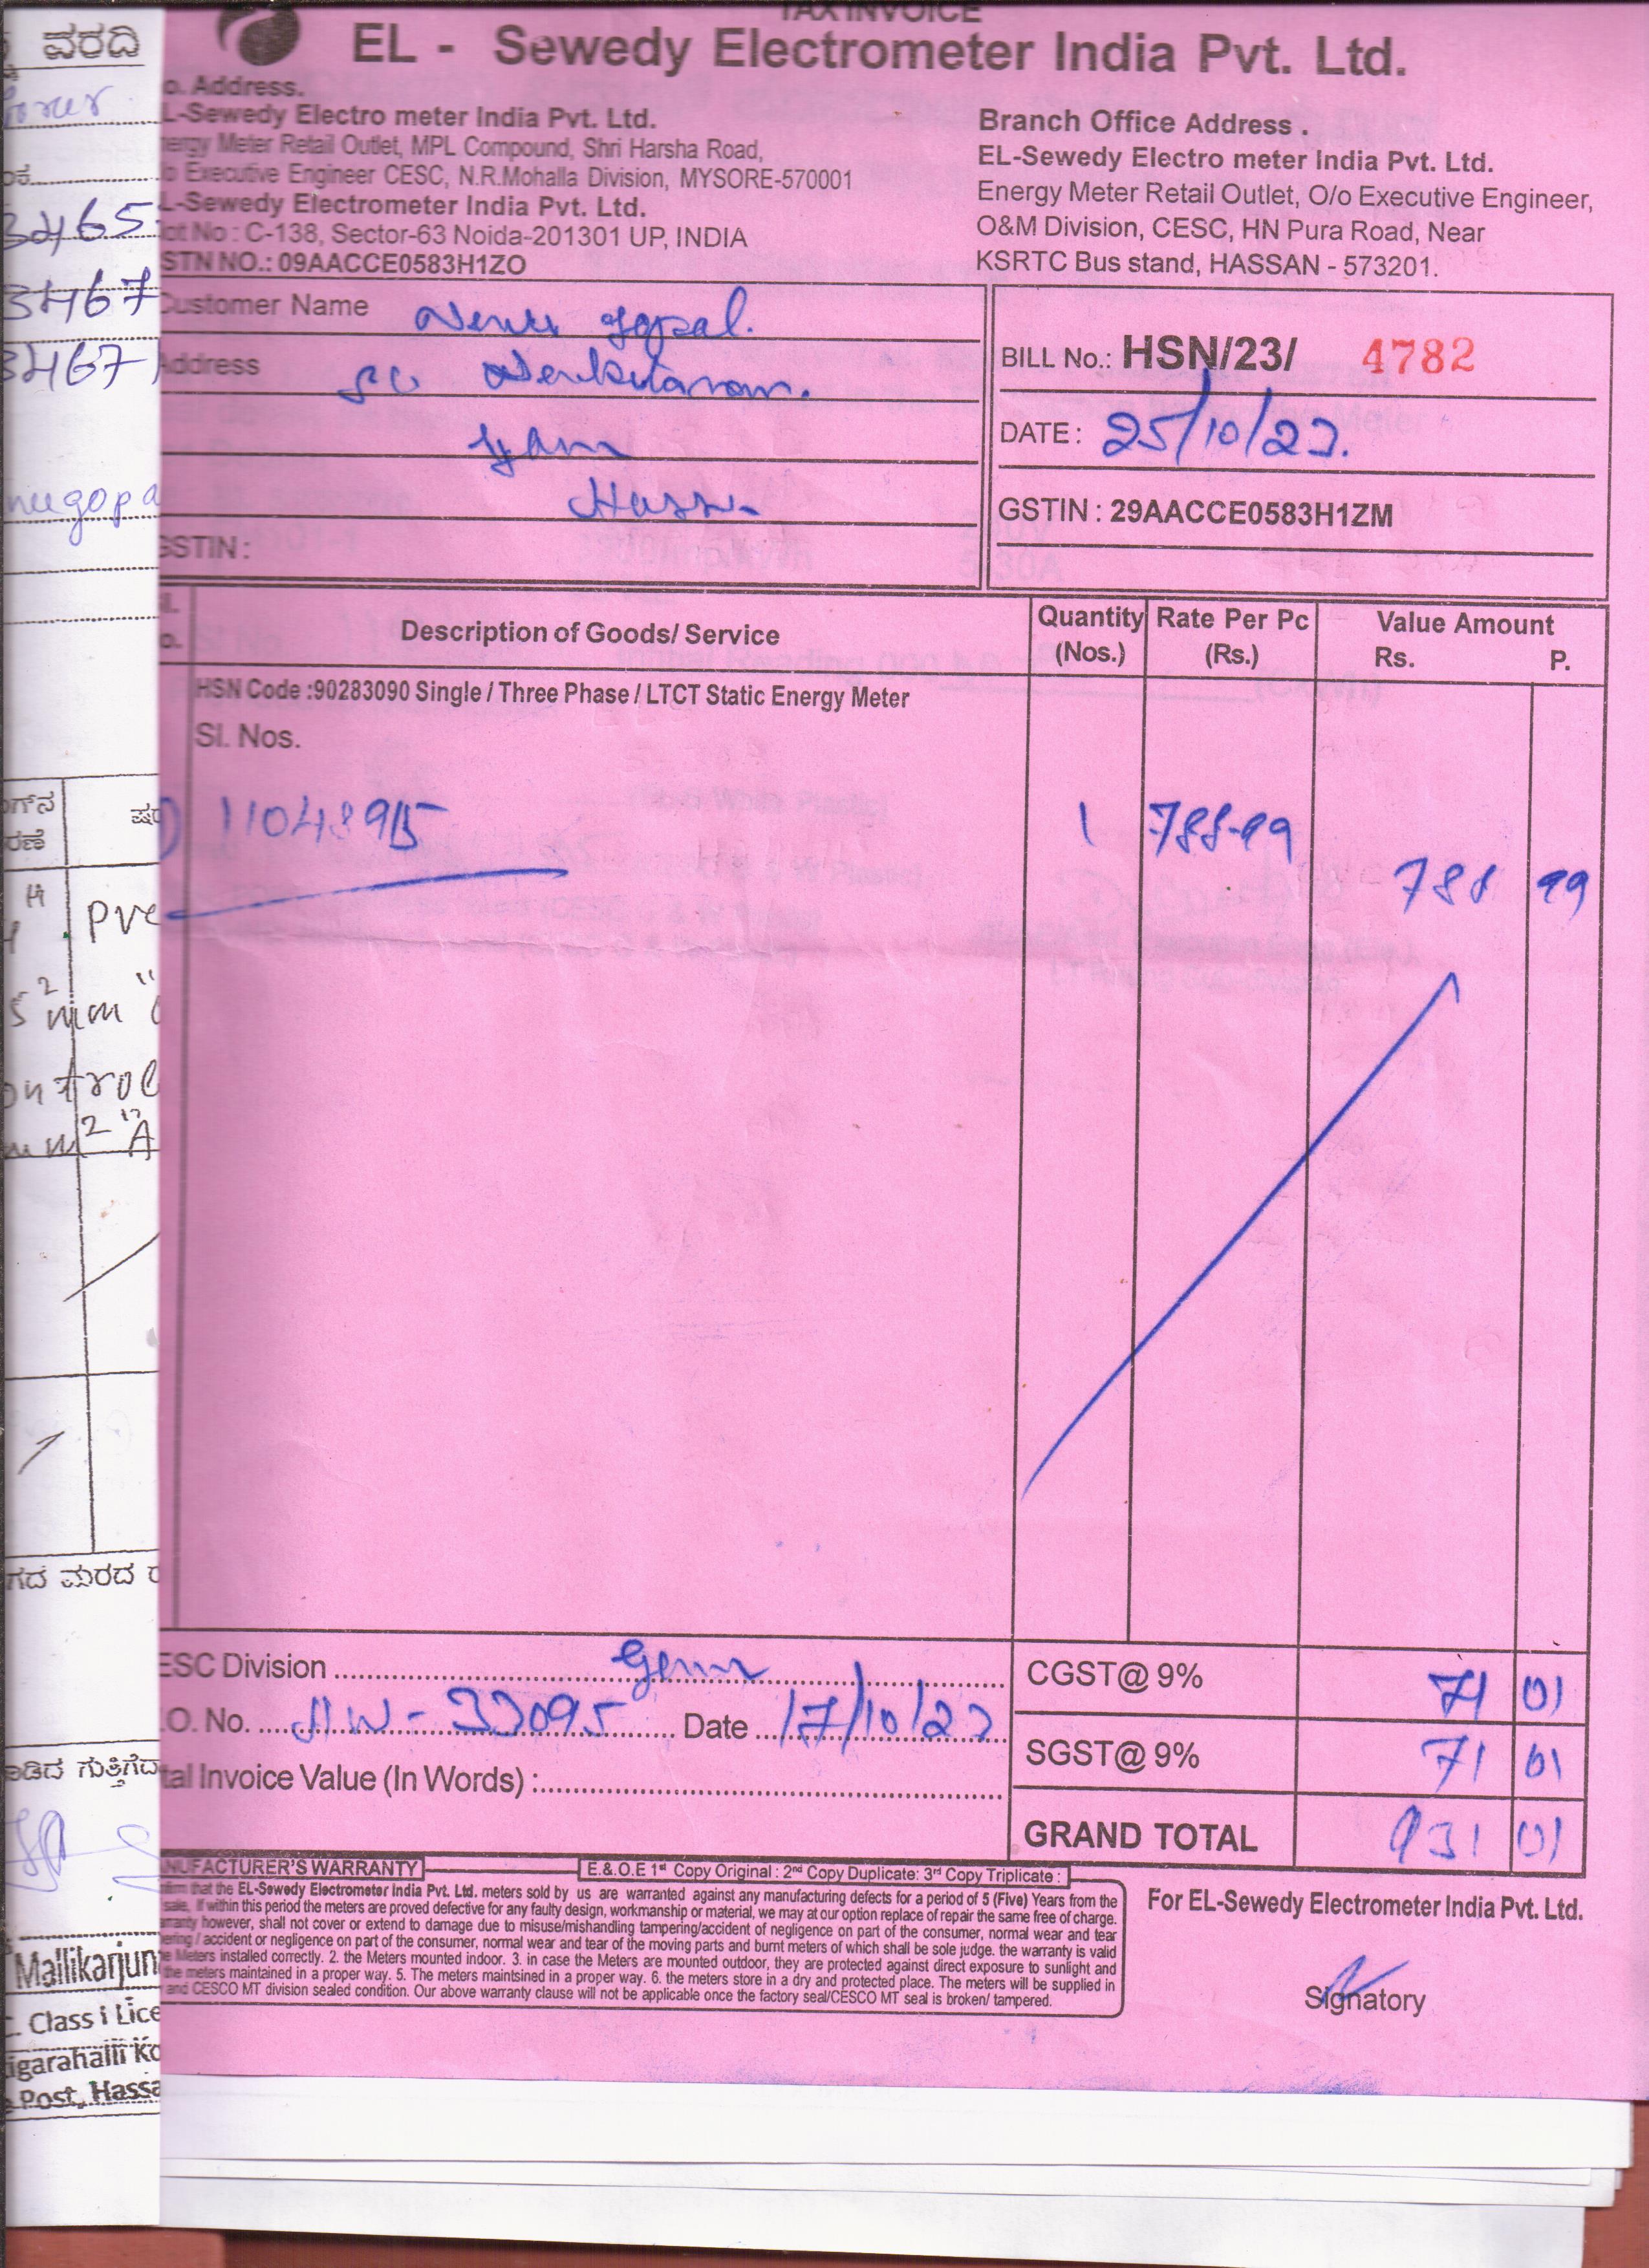 ವರದಿ
3465
3467
3467
nugopa
pve
5²mm"
ontrol
mm²"A
Mallikarjun
Class I Lice
igarahalli Ko
Post, Hassa
TAX INVOICE
EL - Sewedy Electrometer India Pvt. Ltd.
o. Address.
L-Sewedy Electro meter India Pvt. Ltd.
ergy Meter Retail Outlet, MPL Compound, Shri Harsha Road,
o Executive Engineer CESC, N.R.Mohalla Division, MYSORE-570001
L-Sewedy Electrometer India Pvt. Ltd.
ot No : C-138, Sector-63 Noida-201301 UP, INDIA
STN NO.: 09AACCE0583H1ZO
Branch Office Address .
EL-Sewedy Electro meter India Pvt. Ltd.
Energy Meter Retail Outlet, O/o Executive Engineer,
O&M Division, CESC, HN Pura Road, Near
KSRTC Bus stand, HASSAN - 573201.
Customer Name Venu Gopal.
Address So Venkataram.
Hassan
GSTIN :
BILL No.: HSN/23/ 4782
DATE : 25/10/23.
GSTIN : 29AACCE0583H1ZM
Sl. No. Description of Goods/ Service Quantity (Nos.) Rate Per Pc (Rs.) Value Amount Rs. P.
HSN Code :90283090 Single / Three Phase / LTCT Static Energy Meter
Sl. Nos.
11048915 1 788-99 788 99
ESC Division
.O. No. 33095 Date 17/10/23
tal Invoice Value (In Words) :
CGST@ 9% 71 01
SGST@ 9% 71 01
GRAND TOTAL 931 01
NUFACTURER'S WARRANTY E.&.O.E 1st Copy Original : 2nd Copy Duplicate: 3rd Copy Triplicate :
firm that the EL-Sewedy Electrometer India Pvt. Ltd. meters sold by us are warranted against any manufacturing defects for a period of 5 (Five) Years from the
sale, if within this period the meters are proved defective for any faulty design, workmanship or material, we may at our option replace of repair the same free of charge.
rranty however, shall not cover or extend to damage due to misuse/mishandling tampering/accident of negligence on part of the consumer, normal wear and tear
ering / accident or negligence on part of the consumer, normal wear and tear of the moving parts and burnt meters of which shall be sole judge. the warranty is valid
e Meters installed correctly. 2. the Meters mounted indoor. 3. in case the Meters are mounted outdoor, they are protected against direct exposure to sunlight and
the meters maintained in a proper way. 5. The meters maintsined in a proper way. 6. the meters store in a dry and protected place. The meters will be supplied in
and CESCO MT division sealed condition. Our above warranty clause will not be applicable once the factory seal/CESCO MT seal is broken/ tampered.
For EL-Sewedy Electrometer India Pvt. Ltd.
Signatory